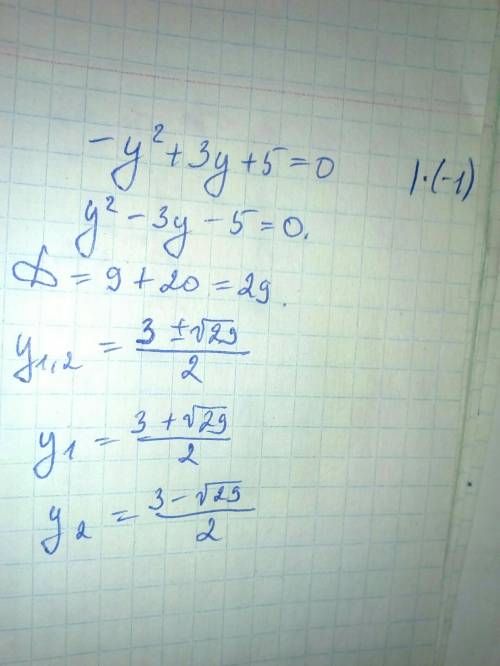 -y² + 3y + 5 = 0 |·(-1)
y² - 3y - 5 = 0.
D = 9 + 20 = 29.
y₁,₂ = (3 ± √29)/2
y₁ = (3 + √29)/2
y₂ = (3 - √29)/2